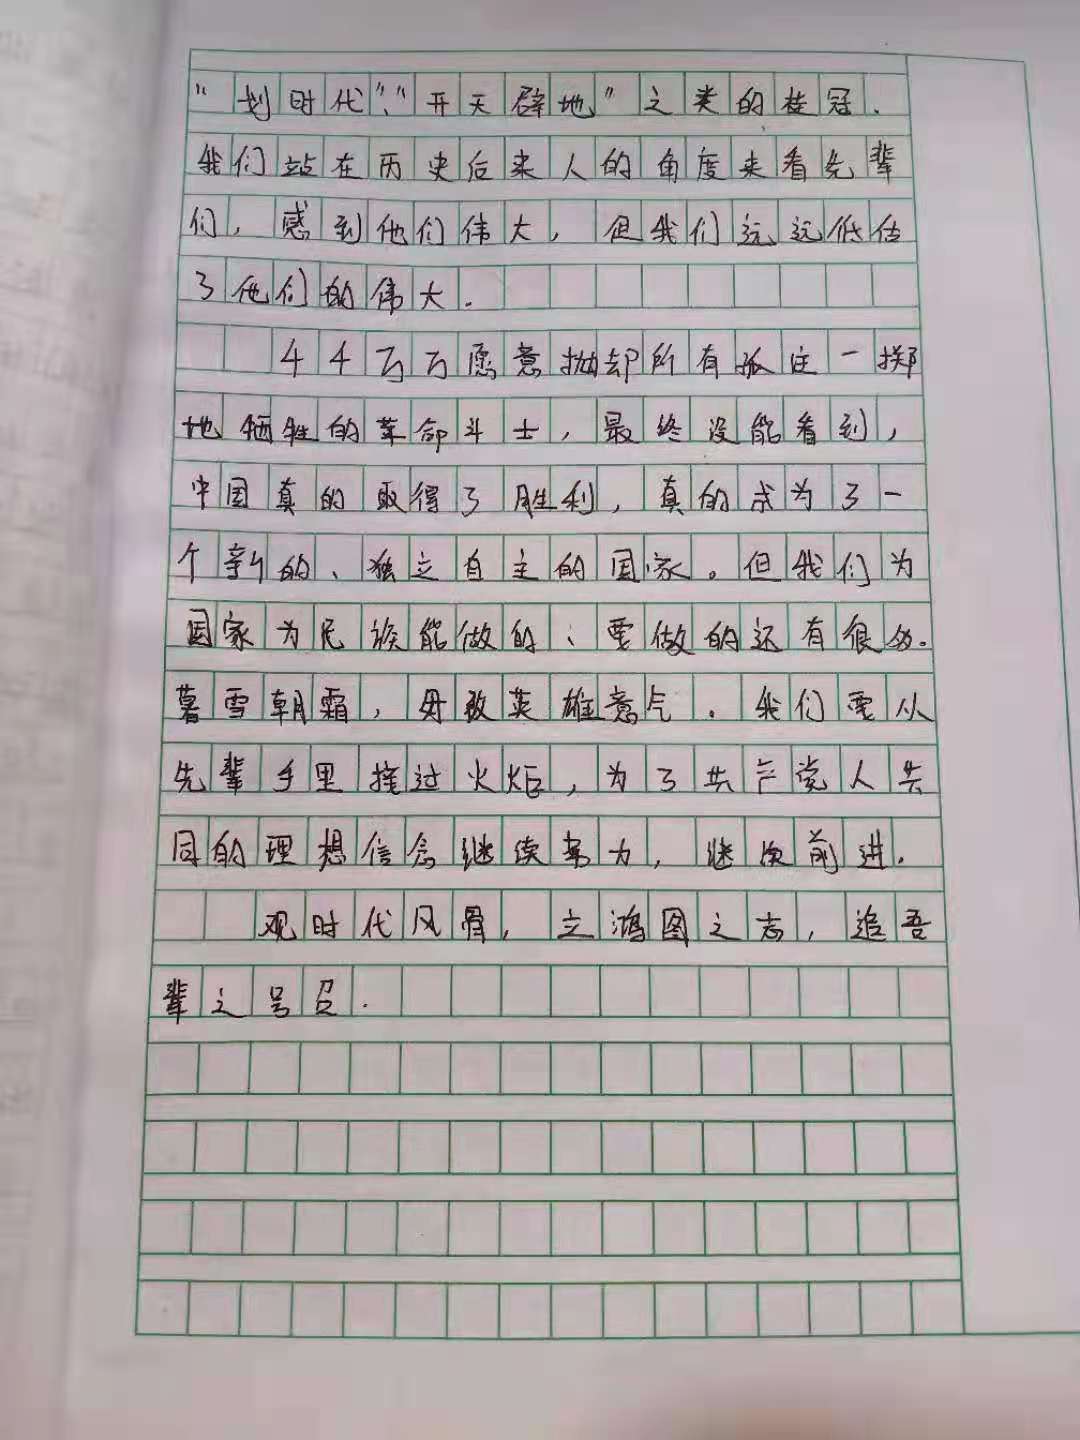 “划时代”、“开天辟地”之类的桂冠.
我们站在历史后来人的角度来看先辈
们，感到他们伟大，但我们远远低估
了他们的伟大.
44万万愿意抛却所有孤注一掷
地牺牲的革命斗士，最终没能看到，
中国真的取得了胜利，真的成为了一
个新的、独立自主的国家。但我们为
国家为民族能做的、要做的还有很多.
暮雪朝霜，毋改英雄意气.我们要从
先辈手里接过火炬，为了共产党人共
同的理想信念继续努力，继续前进.
观时代风骨，立鸿图之志，追吾
辈之号召.